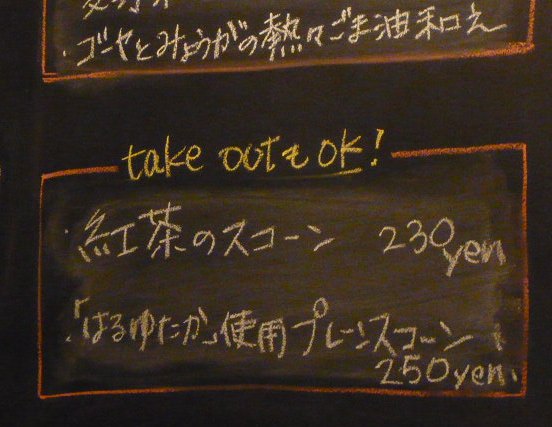 ・ゴーヤとみょうがの熱々ごま油和え
take outも OK!
・紅茶のスコーン 230yen
・「はるゆたか」使用プレーンスコーン
250yen